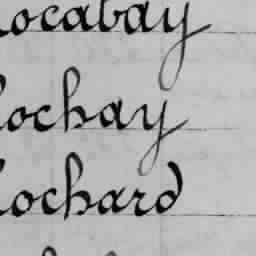 ocabay
ochay
ochard